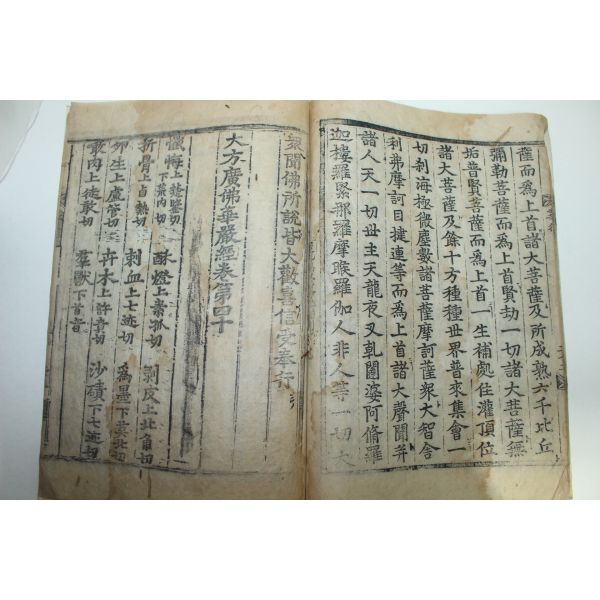 薩而為上首諸大菩薩及所成熟六千比丘
彌勒菩薩而為上首賢劫一切諸大菩薩無
垢普賢菩薩而為上首一生補處住灌頂位
諸大菩薩及餘十方種種世界普來集會一
切刹海極微塵數諸菩薩摩訶薩衆大智舍
利弗摩訶目揵連等而為上首諸大聲聞并
諸人天一切世主天龍夜叉乹闥婆阿脩羅
迦樓羅緊那羅摩睺羅伽人非人等一切大
衆聞佛所說皆大歡喜信受奉行
大方廣佛華嚴經卷第四十
懺悔上懺鑒切下菜内切
酥燈上素孤切
剥皮上北角切
折骨上占熱切
刺血上七迹切
為墨下莫北切
夘生上盧管切
卉木上許貴切
沙磧下七迹切
敢肉上徒敢切
羣獸下首音